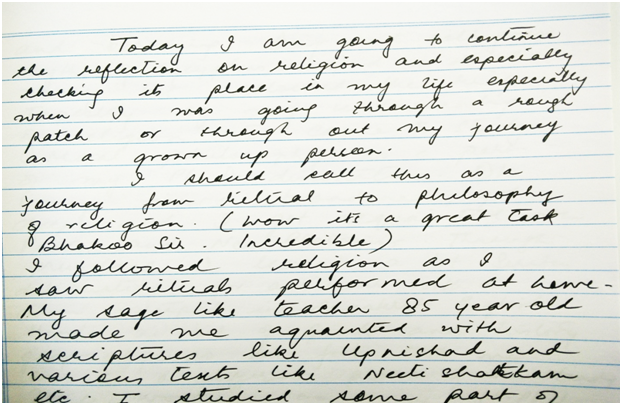 Today I am going to continue
the reflection on religion and especially
checking its place in my life especially
when I was going through a rough
patch or through out my journey
as a grown up person.
I should call this as a
journey from ritual to philosophy
of religion. (Wow its a great task
Bhakoo Sir. Incredible)
I followed religion as I
saw rituals performed at home-
My sage like teacher 85 year old
made me aquainted with
scriptures like Upnishad and
various texts like Neeti shatkam
etc. I studied some part of